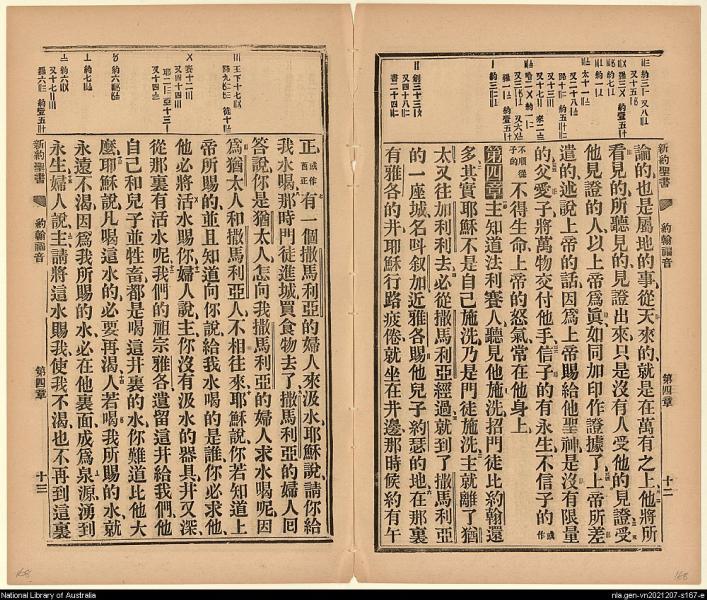 新約聖書
約翰福音
第四章
十二
論的、也是屬地的事、從天來的、就是在萬有之上、他將所
看見的所聽見的、見證出來、只是沒有人受他的見證、受
他見證的人、以上帝爲眞、如同加印作證據了、上帝所差
遣的、述說上帝的話、因爲上帝賜給他聖神、是沒有限量
的、父愛子、將萬物交付他手、信子的有永生、不信子的
不得生命、上帝的怒氣、常在他身上、
第四章主知道法利賽人聽見他施洗招門徒、比約翰還
多、其實耶穌不是自己施洗、乃是門徒施洗、主就離了猶
太、又往加利利去、必從撒馬利亞經過、就到了撒馬利亞
的一座城、名呌叙加、近雅各賜他兒子約瑟的地、在那裏
有雅各的井、耶穌行路疲倦、就坐在井邊、那時候約有午
正、有一個撒馬利亞的婦人來汲水、耶穌說、請你給
我水喝、那時門徒進城買食物去了、撒馬利亞的婦人回
答說、你是猶太人、怎向我撒馬利亞的婦人求水喝呢、因
爲猶太人和撒馬利亞人不相往來、耶穌說、你若知道上
帝所賜的、並且知道向你說給我水喝的是誰、你必求他、
他必將活水賜你、婦人說、主、你沒有汲水的器具、井又深、
從那裏有活水呢、我們的祖宗雅各遺留這井給我們、他
自己和兒子並牲畜、都是喝這井裏的水、你難道比他大
麼、耶穌說、凡喝這水的、必要再渴、人若喝我所賜的水、就
永遠不渴、因爲我所賜的水、必在他裏面、成爲泉源、湧到
永生、婦人說、主、請將這水賜我、使我不渴、也不再到這裏
新約聖書
約翰福音
第四章
十三
National Library of Australia
nla.gen-vn2021207-s167-e